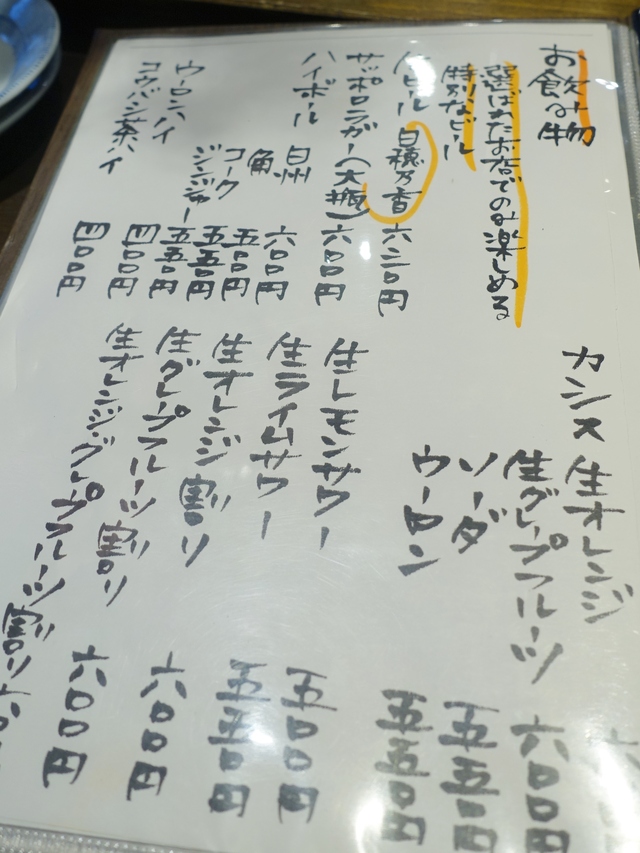 お飲み物
選ばれたお店でのみ楽しめる
特別なビール
生ビール 白穂乃香 六三〇円
サッポロラガー(大瓶) 六〇〇円
ハイボール 白州 六〇〇円
角 五〇〇円
コーク 五五〇円
ジンジャー 五五〇円
ウーロンハイ 四〇〇円
コウバシ茶ハイ 四〇〇円
カシス 生オレンジ
生グレープフルーツ 六〇〇円
ソーダ 五五〇円
ウーロン 五五〇円
生レモンサワー 五〇〇円
生ライムサワー 五五〇円
生オレンジ割り 六〇〇円
生グレープフルーツ割り 六〇〇円
生オレンジ・グレープフルーツ割り 六〇